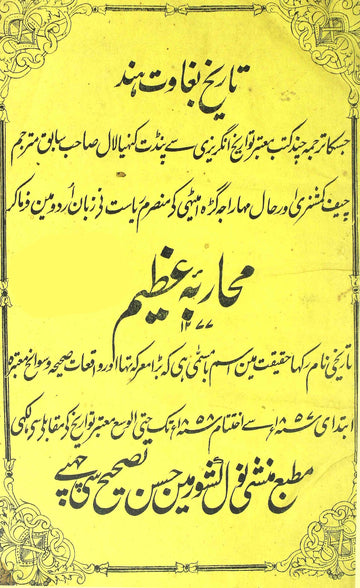 تاریخ بغاوت ہند
جسکا ترجمہ چند کتب معتبر تواریخ انگریزی سے پنڈت کنہیا لال صاحب سابق مترجم
چیف کمشنری اور حال مہاراجہ گڑہ امیٹھی کی منصرم ریاست نی زبان اُردو مین فرما کر
محاربۂ عظیم
۱۲۷۷
تاریخی نام رکہا حقیقت مین اسم بامسمٰی ہی کہ بڑا معرکہ تہا اور واقعات صحیحہ و سوانح معتبرہ
ابتدای ۱۸۵۷ء سے اختتام ۱۸۵۸ء تک حتی الوسع معتبر تواریخ کی مقابلہ سی لکہی
مطبع منشی نول کشور مین حسن تصحیح سی چہپے